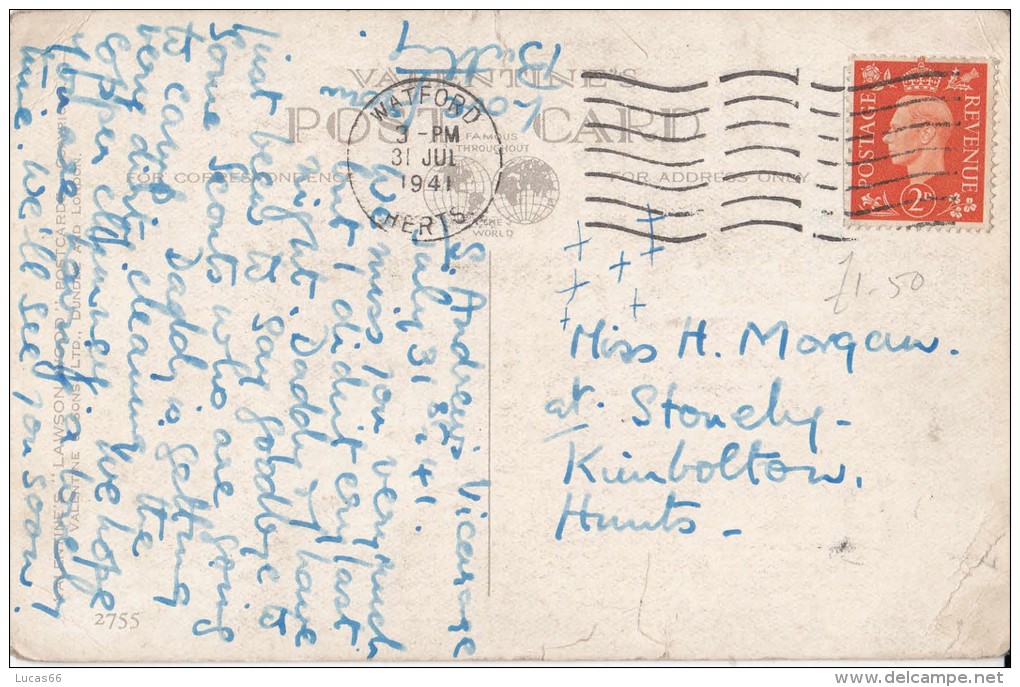 VALENTINE'S
POST CARD
FAMOUS
THROUGHOUT
THE
WORLD
FOR CORRESPONDENCE
FOR ADDRESS ONLY
WATFORD
3 - PM
31 JUL
1941
HERTS
POSTAGE
REVENUE
2D
£1.50
S. Andrew's Vicarage
July 31st 41.
We miss you very much
but I didn't cry last
night. Daddy & I have
just been to say goodbye to
some Scouts who are going
to camp. Daddy is getting
very dirty cleaning the
copper chimney. We hope
you are having a lovely
time. We'll see you soon.
Miss H. Morgan.
at. Stonely.
Kimbolton.
Hunts.
VALENTINE'S "LAWSON WOOD" POSTCARD COPYRIGHT
VALENTINE & SONS, LTD., DUNDEE AND LONDON.
2755
Lucas66
delcampe.net